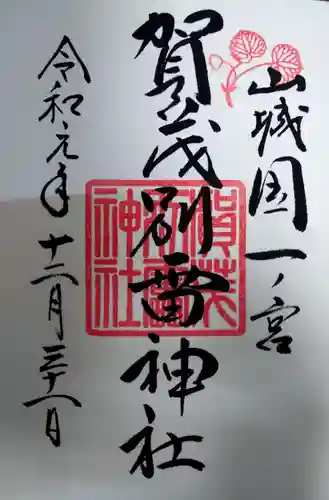 山城国一ノ宮
賀茂別雷神社
令和元年十二月三十一日
賀茂別雷神社